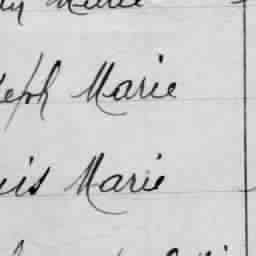 Marie
eph Marie
uis Marie